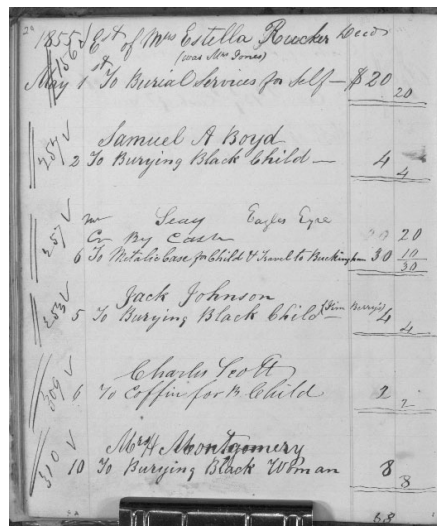 1855 Est of Mrs Estella Rucker Decd
(was Mrs Jones)
156
May 1st To Burial Services for Self — $20
20
Samuel A Boyd
257 2 To Burying Black Child — 4
4
Mr Seay Eagles Eyre
257 Cr By Cash 20
6 To Metalic Case for Child & Travel to Buckingham 30 10
30
Jack Johnson
253 5 To Burying Black Child (Jim Berry's) 4
4
Charles Scott
309 6 To Coffin for B Child 2
2
Mrs H Montgomery
310 10 To Burying Black Woman 8
8
68